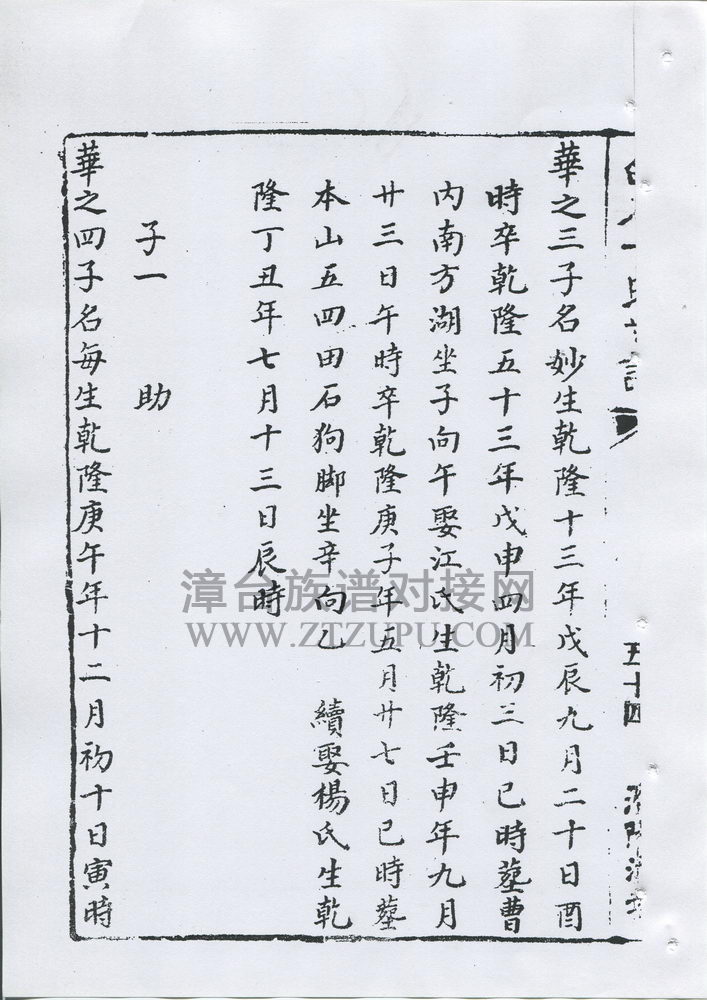 五十四
華之三子名妙生乾隆十三年戊辰九月二十日酉
時卒乾隆五十三年戊申四月初三日巳時塟曹
内南方湖坐子向午娶江氏生乾隆壬申年九月
廿三日午時卒乾隆庚子年五月廿七日巳時塟
本山五四田石狗脚坐辛向乙 續娶楊氏生乾
隆丁丑年七月十三日辰時
子一 助
華之四子名每生乾隆庚午年十二月初十日寅時
漳台族谱对接网
WWW.ZTZUPU.COM